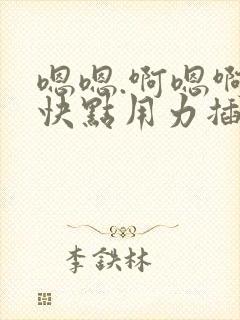 嗯嗯.啊嗯啊
快點用力插
李鉄林